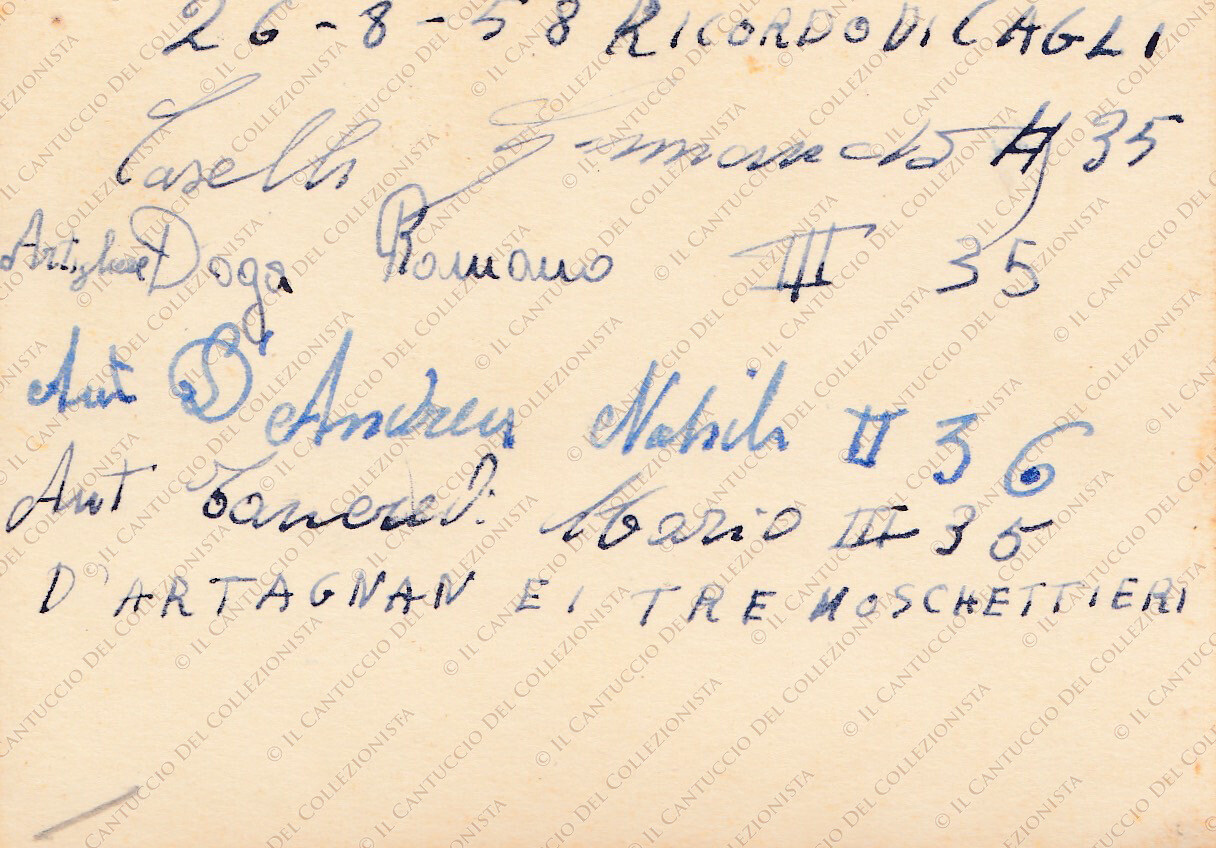 26-8-58 RICORDO DI CAGLI
Caselli 35
Artigliere Doga Romano III 35
Aut D'Andrea II 36
Aut Tancredi Mario III 35
D'ARTAGNAN E I TRE MOSCHETTIERI
© IL CANTUCCIO DEL COLLEZIONISTA